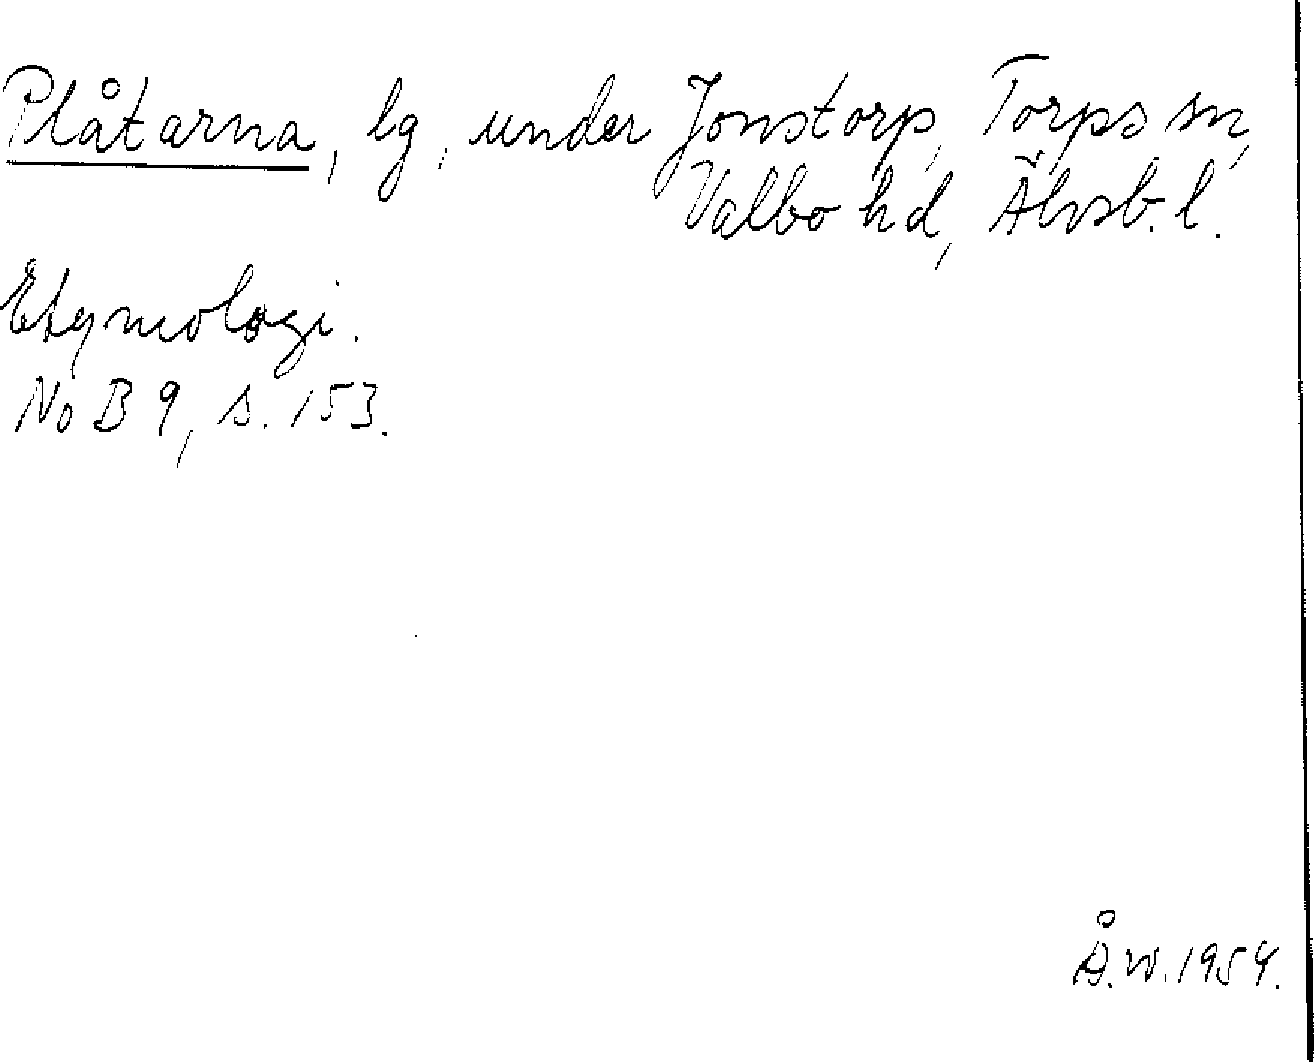 Plåtarna, lg, under Jonstorp, Torps sn,
Valbo hd, Älvsb. l.
Etymologi.
NoB 9, s. 153.
Å.W. 1954.